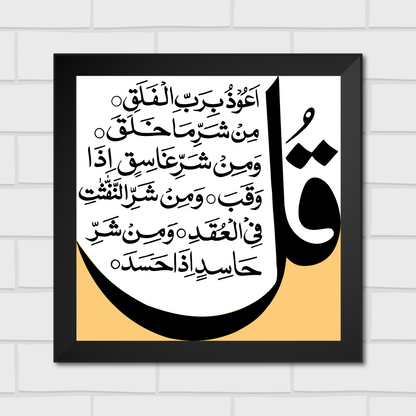 قُل
اَعُوۡذُ بِرَبِّ الۡفَلَقِ ۝
مِنۡ شَرِّ مَا خَلَقَ ۝
وَمِنۡ شَرِّ غَاسِقٍ اِذَا
وَقَبَ ۝ وَمِنۡ شَرِّ النَّفّٰثٰتِ
فِى الۡعُقَدِ ۝ وَمِنۡ شَرِّ
حَاسِدٍ اِذَا حَسَدَ ۝